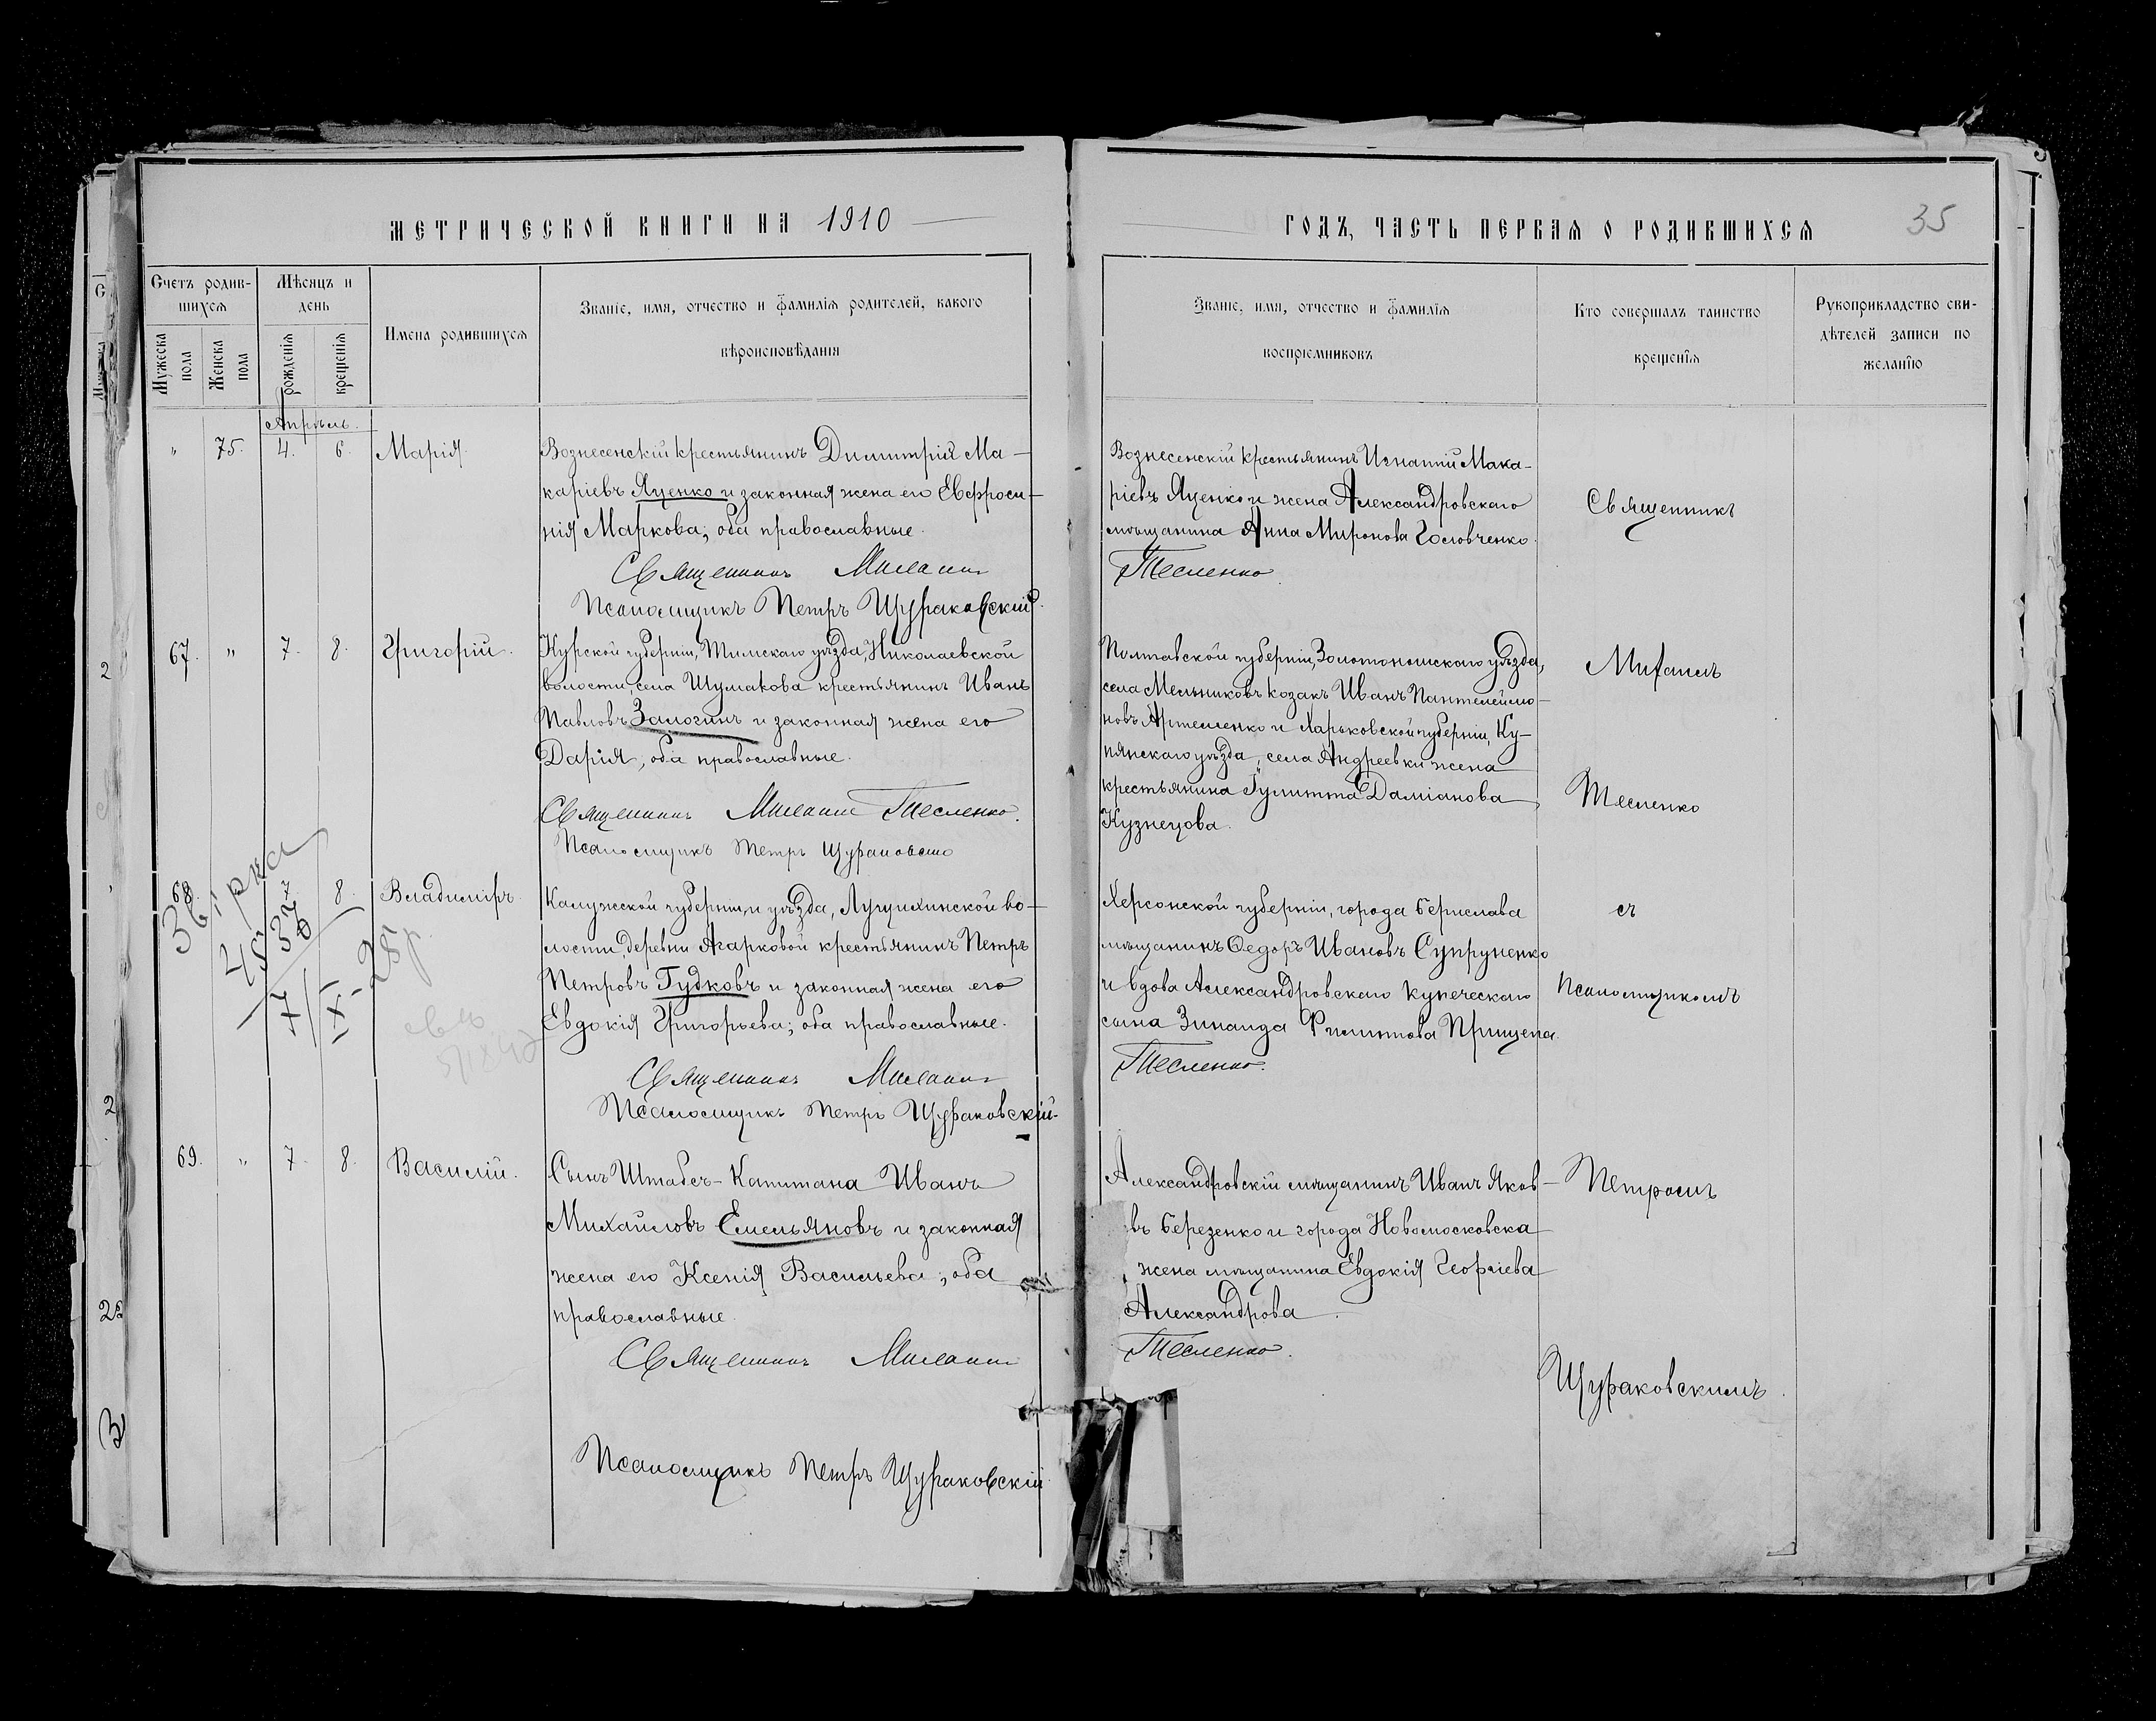 МЕТРИЧЕСКОЙ КНИГИ НА 1910
Счетъ родив-
шихся
Мужеска пола
Женска пола
Мѣсяцъ и
день
рожденія
крещенія
Имена родившихся
Званіе, имя, отчество и фамилія родителей, какого
вѣроисповѣданія
Апрѣль.
" 75. 4. 6. Марія.
Вознесенскій крестьянинъ Димитрій Ма-
каріевъ Яценко и законная жена его Евфроси-
нія Маркова; оба православные.
Священникъ Михаилъ
Псаломщикъ Петръ Щураковскій.
67. " 7. 8. Григорій.
Курской губерніи, Тимскаго уѣзда, Николаевской
волости, села Шумакова крестьянинъ Иванъ
Павловъ Залогинъ и законная жена его
Дарія, оба православные.
Священникъ Михаилъ Тесленко.
Псаломщикъ Петръ Щураковскій
68. 7. 8. Владиміръ.
Калужской губерніи и уѣзда, во-
лости, деревни Агарковой крестьянинъ Петръ
Петровъ Гудковъ и законная жена его
Евдокія Григорьева; оба православные.
Священникъ Михаилъ
Псаломщикъ Петръ Щураковскій.
69. " 7. 8. Василій.
Сынъ Штабсъ-Капитана Иванъ
Михайловъ Емельяновъ и законная
жена его Ксенія Васильева; оба
православные.
Священникъ Михаилъ
Псаломщикъ Петръ Щураковскій
ГОДЪ, ЧАСТЬ ПЕРВАЯ О РОДИВШИХСЯ
35
Званіе, имя, отчество и фамилія
воспріемниковъ
Кто совершалъ таинство
крещенія
Рукоприкладство сви-
дѣтелей записи по
желанію
Вознесенскій крестьянинъ Игнатій Мака-
ріевъ Яценко и жена Александровскаго
мѣщанина Анна Миронова Головченко.
Тесленко.
Полтавской губерніи, Золотоношскаго уѣзда,
села Мельниковъ козакъ Иванъ Пантелеймо-
новъ Артеменко и Харьковской губерніи, Ку-
пянскаго уѣзда, села Андреевки жена
крестьянина Іулитта Даміанова
Кузнецова.
Херсонской губерніи, города Берислава
мѣщанинъ Ѳедоръ Ивановъ Супруненко
и вдова Александровскаго купеческаго
сына Зинаида Филиппова Прищепа.
Тесленко.
Александровскій мѣщанинъ Иванъ Яков-
въ Березенко и города Новомосковска
жена мѣщанина Евдокія Георгіева
Александрова.
Тесленко.
Священникъ
Михаилъ
Тесленко
съ
Псаломщикомъ
Петромъ
Щураковскимъ.